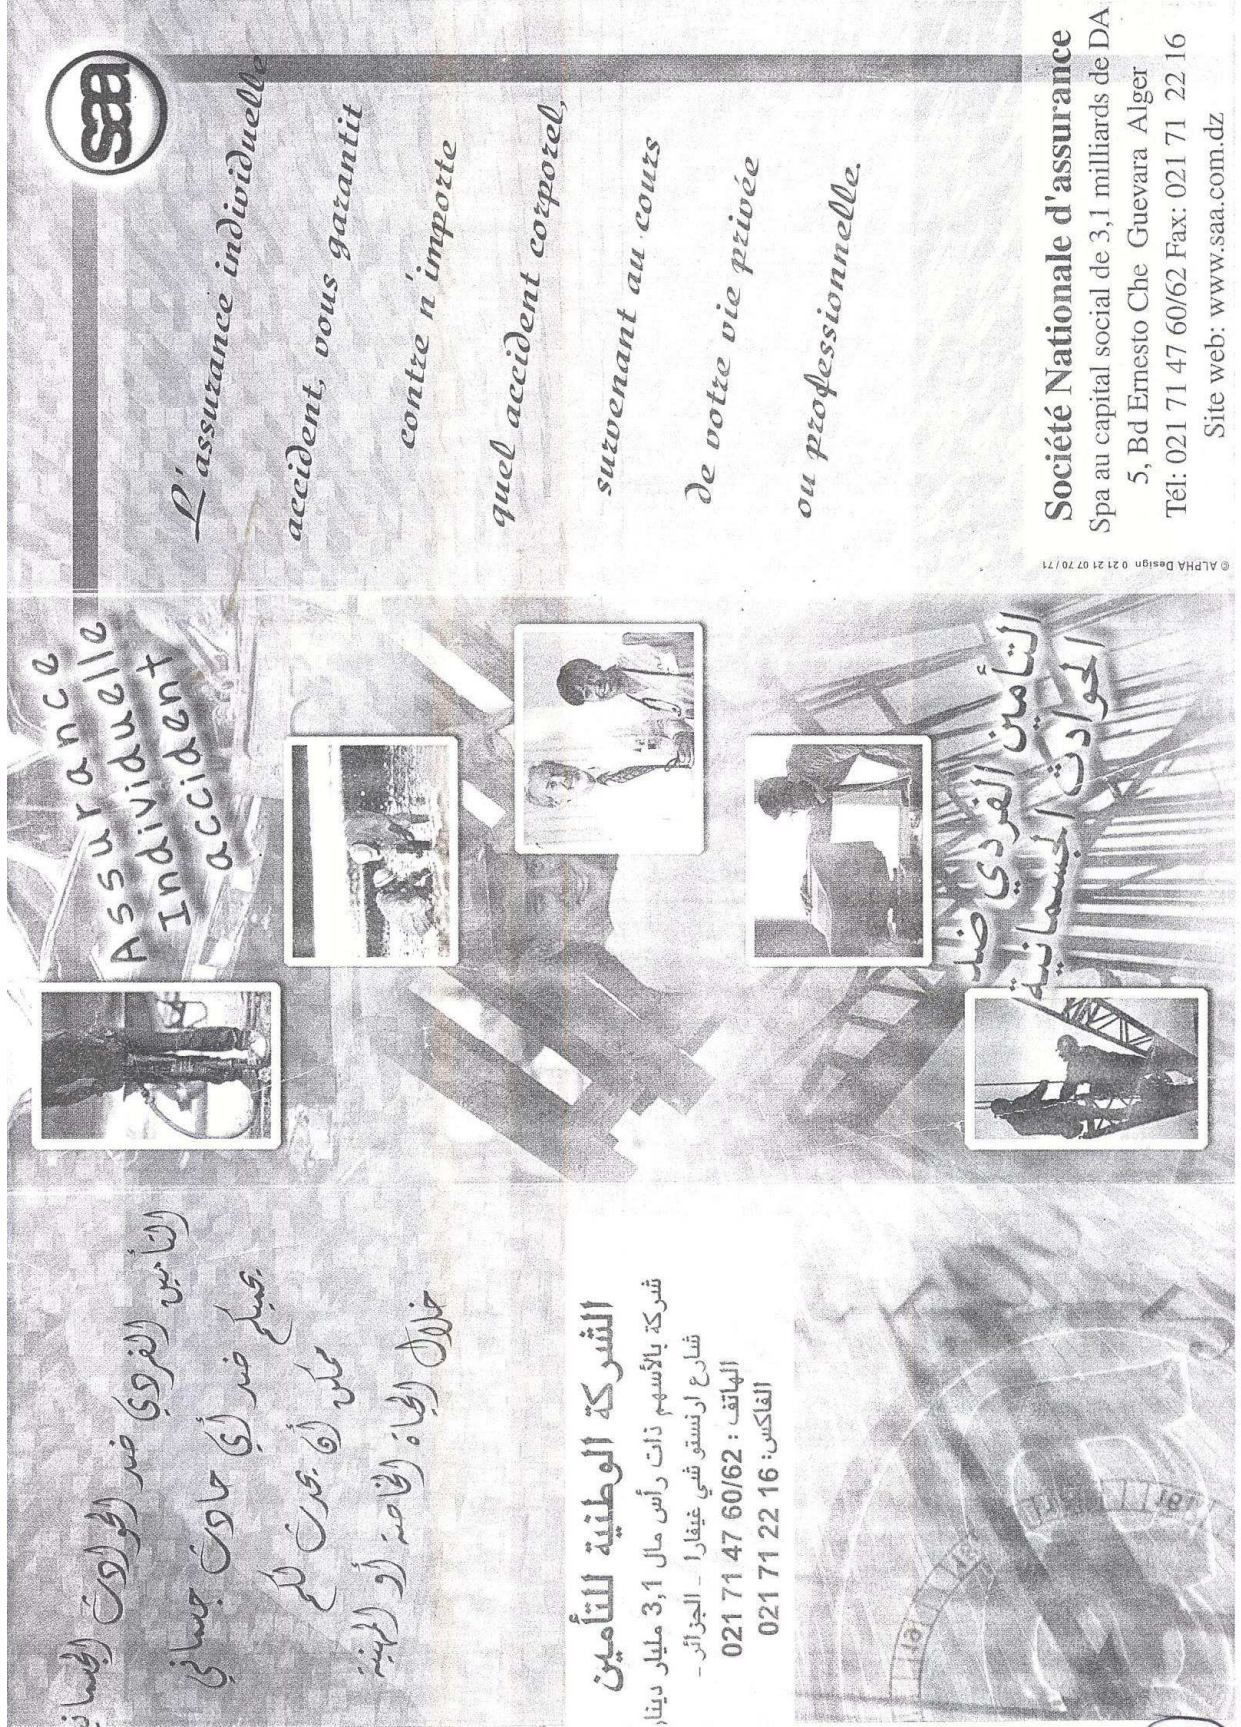 saa
L'assurance individuelle
accident, vous garantit
contre n'importe
quel accident corporel,
survenant au cours
de votre vie privée
ou professionnelle.
Société Nationale d'assurance
Spa au capital social de 3,1 milliards de DA
5, Bd Ernesto Che Guevara Alger
Tél: 021 71 47 60/62 Fax: 021 71 22 16
Site web: www.saa.com.dz
© ALPHA Design 0 21 21 07 70 / 71
Assurance
Individuelle
accident
التأمين الفردي ضد
الحوادث الجسمانية
التأمين الفردي ضد الحوادث الجسماني
يحميكم ضد أي حادث جسماني
ممكن أن يحدث لكم
خلال الحياة الخاصة أو المهنية
الشركة الوطنية للتأمين
شركة بالأسهم ذات رأس مال 3,1 مليار دينار
شارع ارنستو شي غيفارا - الجزائر -
الهاتف : 60/62 47 71 021
الفاكس: 16 22 71 021